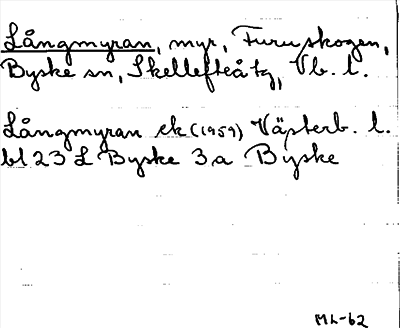 Långmyran, myr, Furuskogen,
Byske sn, Skellefteå tg, Vb. l.
Långmyran ek (1959) Västerb. l.
bl 23 L Byske 3a Byske
ML-62